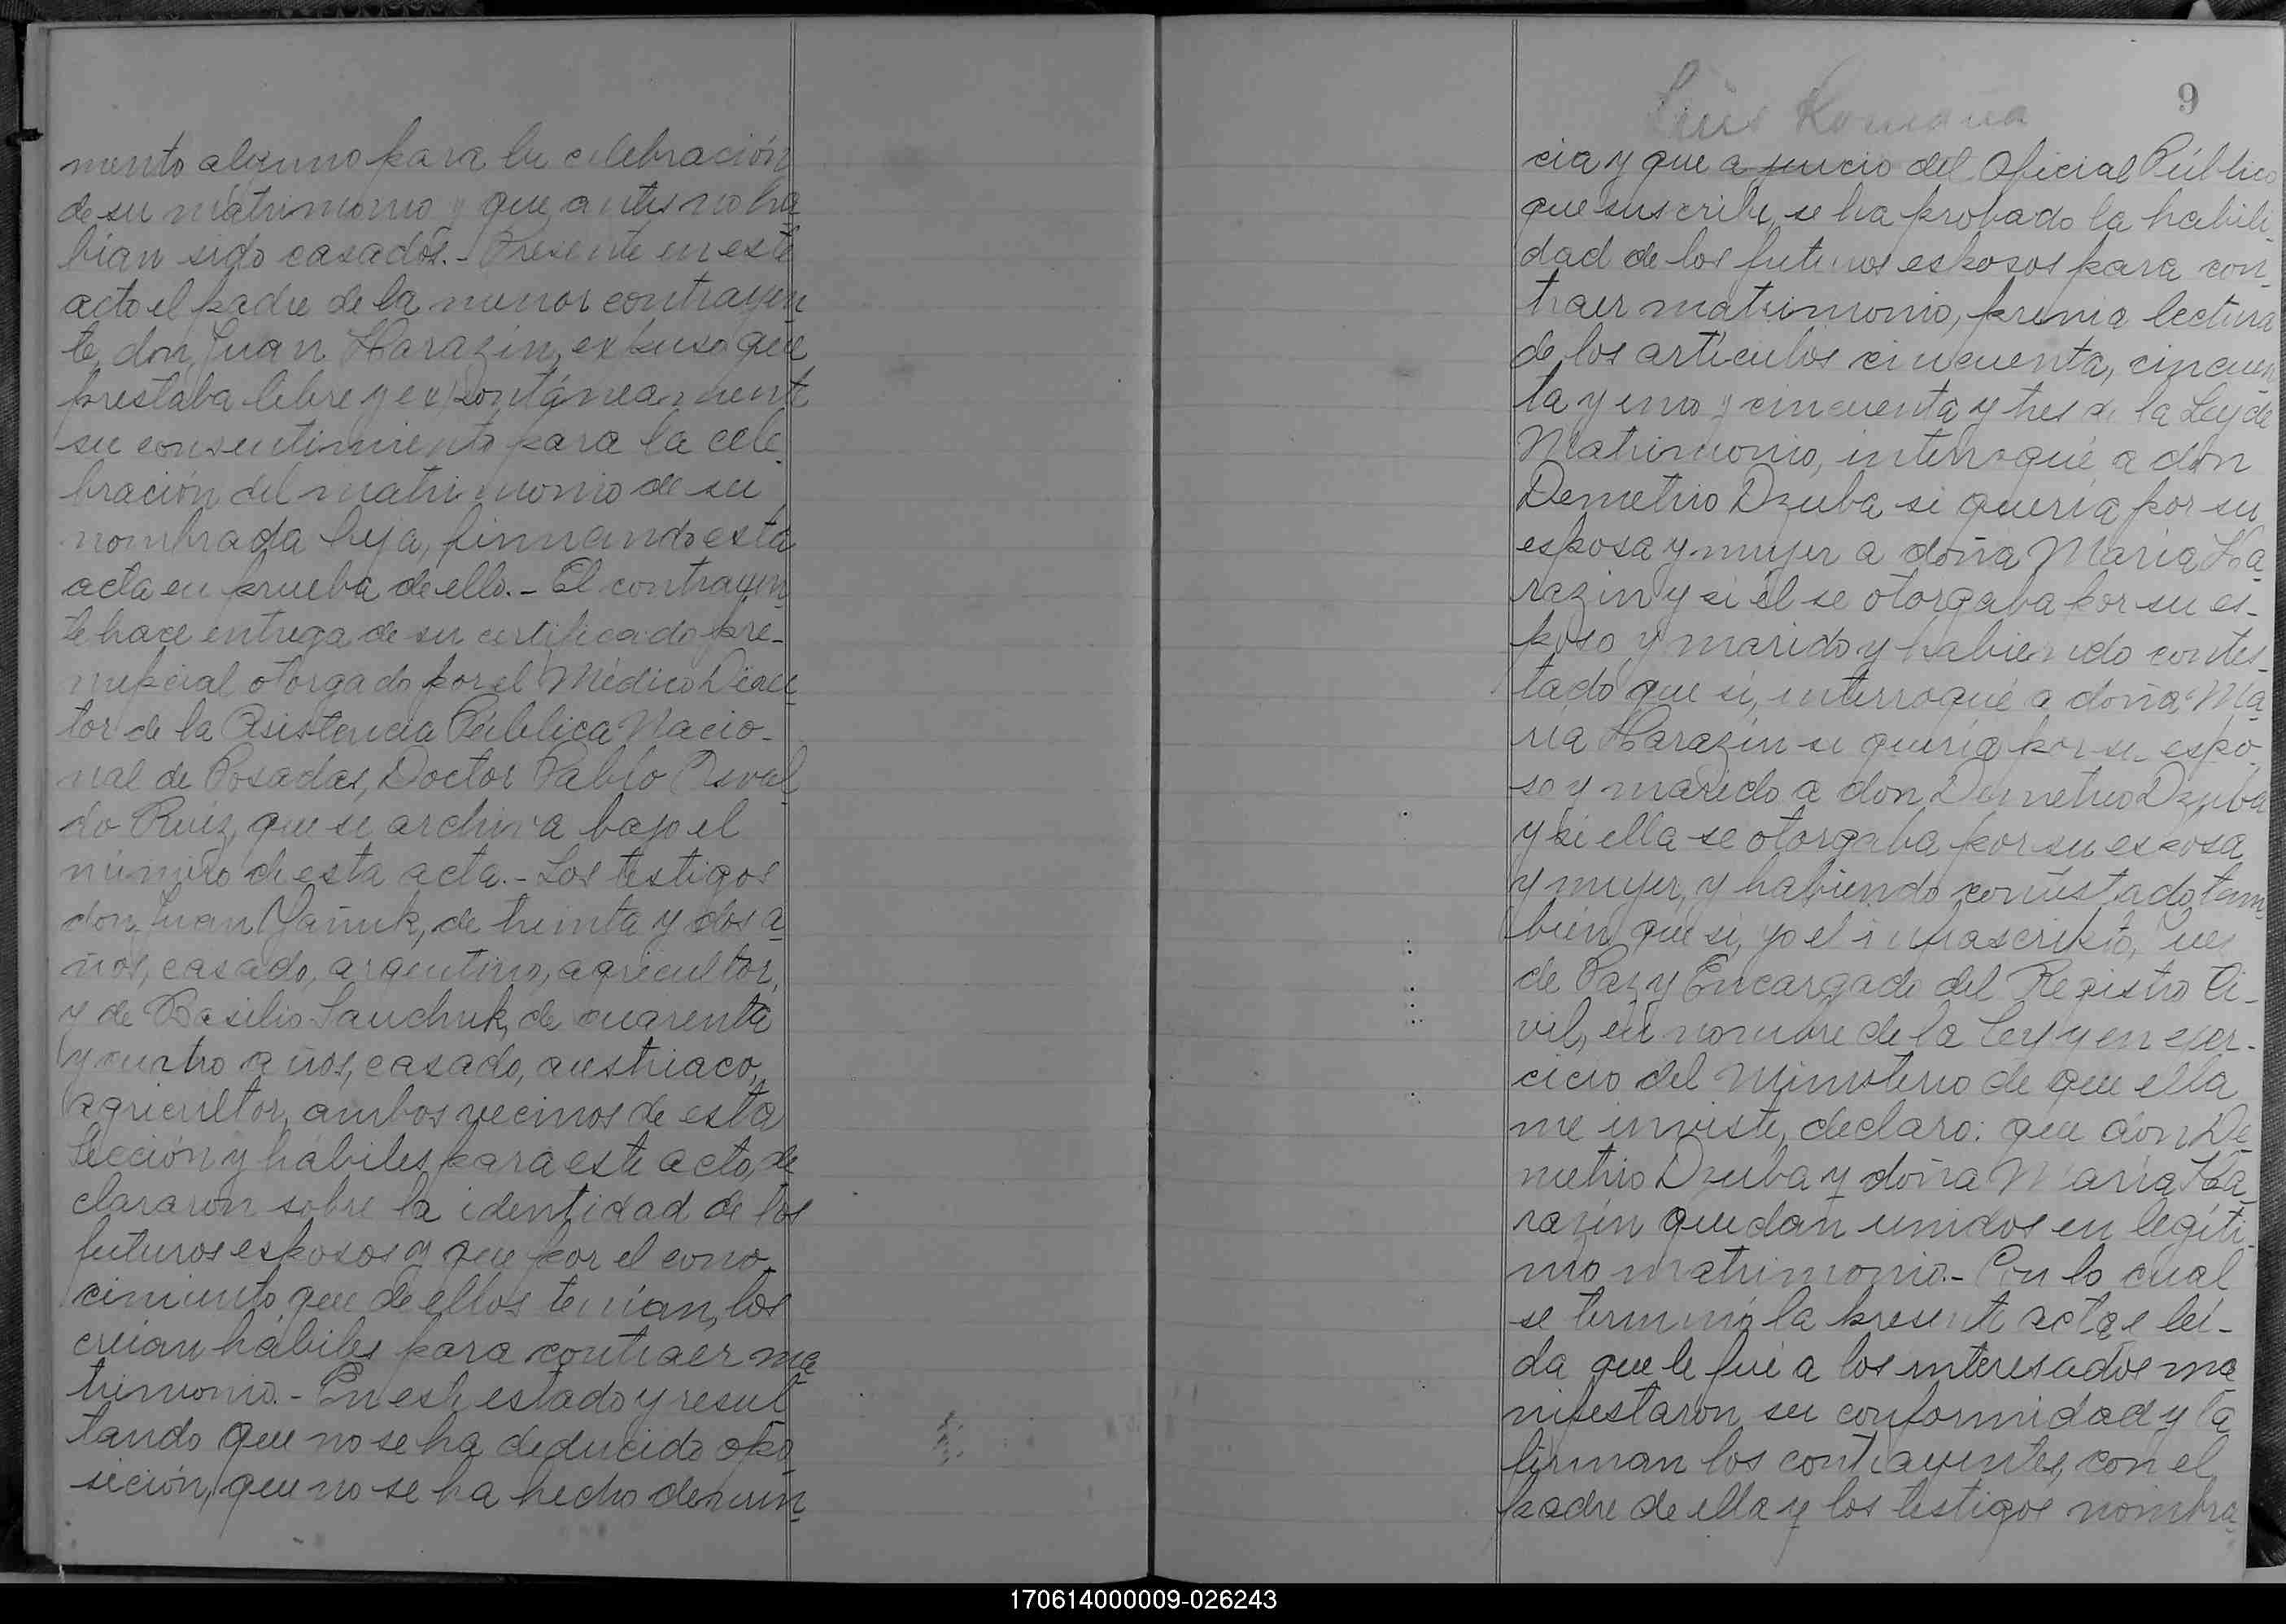 mento alguno para la celebración
de su matrimonio y que antes no ha_
bian sido casados.- Presente en este
acto el padre de la menor contrayen_
te, don Juan Harazin, expuso que
prestaba libre y expontáneamente
su consentimiento para la cele_
bración del matrimonio de su
nombrada hija, firmando esta
acta en prueba de ello.- El contrayen_
te hace entrega de su certificado pre_
nupcial otorgado por el Médico Direc_
tor de la Asistencia Pública Nacio_
nal de Posadas, Doctor Pablo Osval_
do Ruiz, que se archiva bajo el
número de esta acta.- Los testigos
don Juan Yañuk, de treinta y dos a_
ños, casado, argentino, agricultor,
y de Basilio Sauchuk, de cuarenta
y cuatro años, casado, austriaco,
agricultor, ambos vecinos de esta
Sección y hábiles para este acto, de_
clararon sobre la identidad de los
futuros esposos y que por el cono_
cimiento que de ellos tenían, los
creían hábiles para contraer ma_
trimonio.- En este estado y resul_
tando que no se ha deducido opo_
sición, que no se ha hecho denun_
9
Luis
cia y que a juicio del Oficial Público
que suscribe, se ha probado la habili_
dad de los futuros esposos para con_
traer matrimonio, previa lectura
de los artículos cincuenta, cincuen
ta y uno y cincuenta y tres de la Ley de
Matrimonio, interrogué a don
Demetrio Dzuba si quería por su
esposa y mujer a doña María Ha_
razin y si él se otorgaba por su es_
poso y marido y habiendo contes_
tado que si, interrogué a doña Ma_
ría Harazin si quería por su espo_
so y marido a don Demetrio Dzuba
y si ella se otorgaba por su esposa
y mujer, y habiendo contestado tam_
bién que si, yo el infrascripto, Juez
de Paz y Encargado del Registro Ci_
vil, en nombre de la Ley y en ejer_
cicio del Ministerio de que ella
me inviste, declaro: que don De_
metrio Dzuba y doña María Ha_
razin quedan unidos en legíti_
mo matrimonio.- Con lo cual
se terminó la presente acta e leí_
da que le fué a los interesados ma_
nifestaron su conformidad y la
firman los contrayentes, con el
padre de ella y los testigos nombra_
170614000009-026243